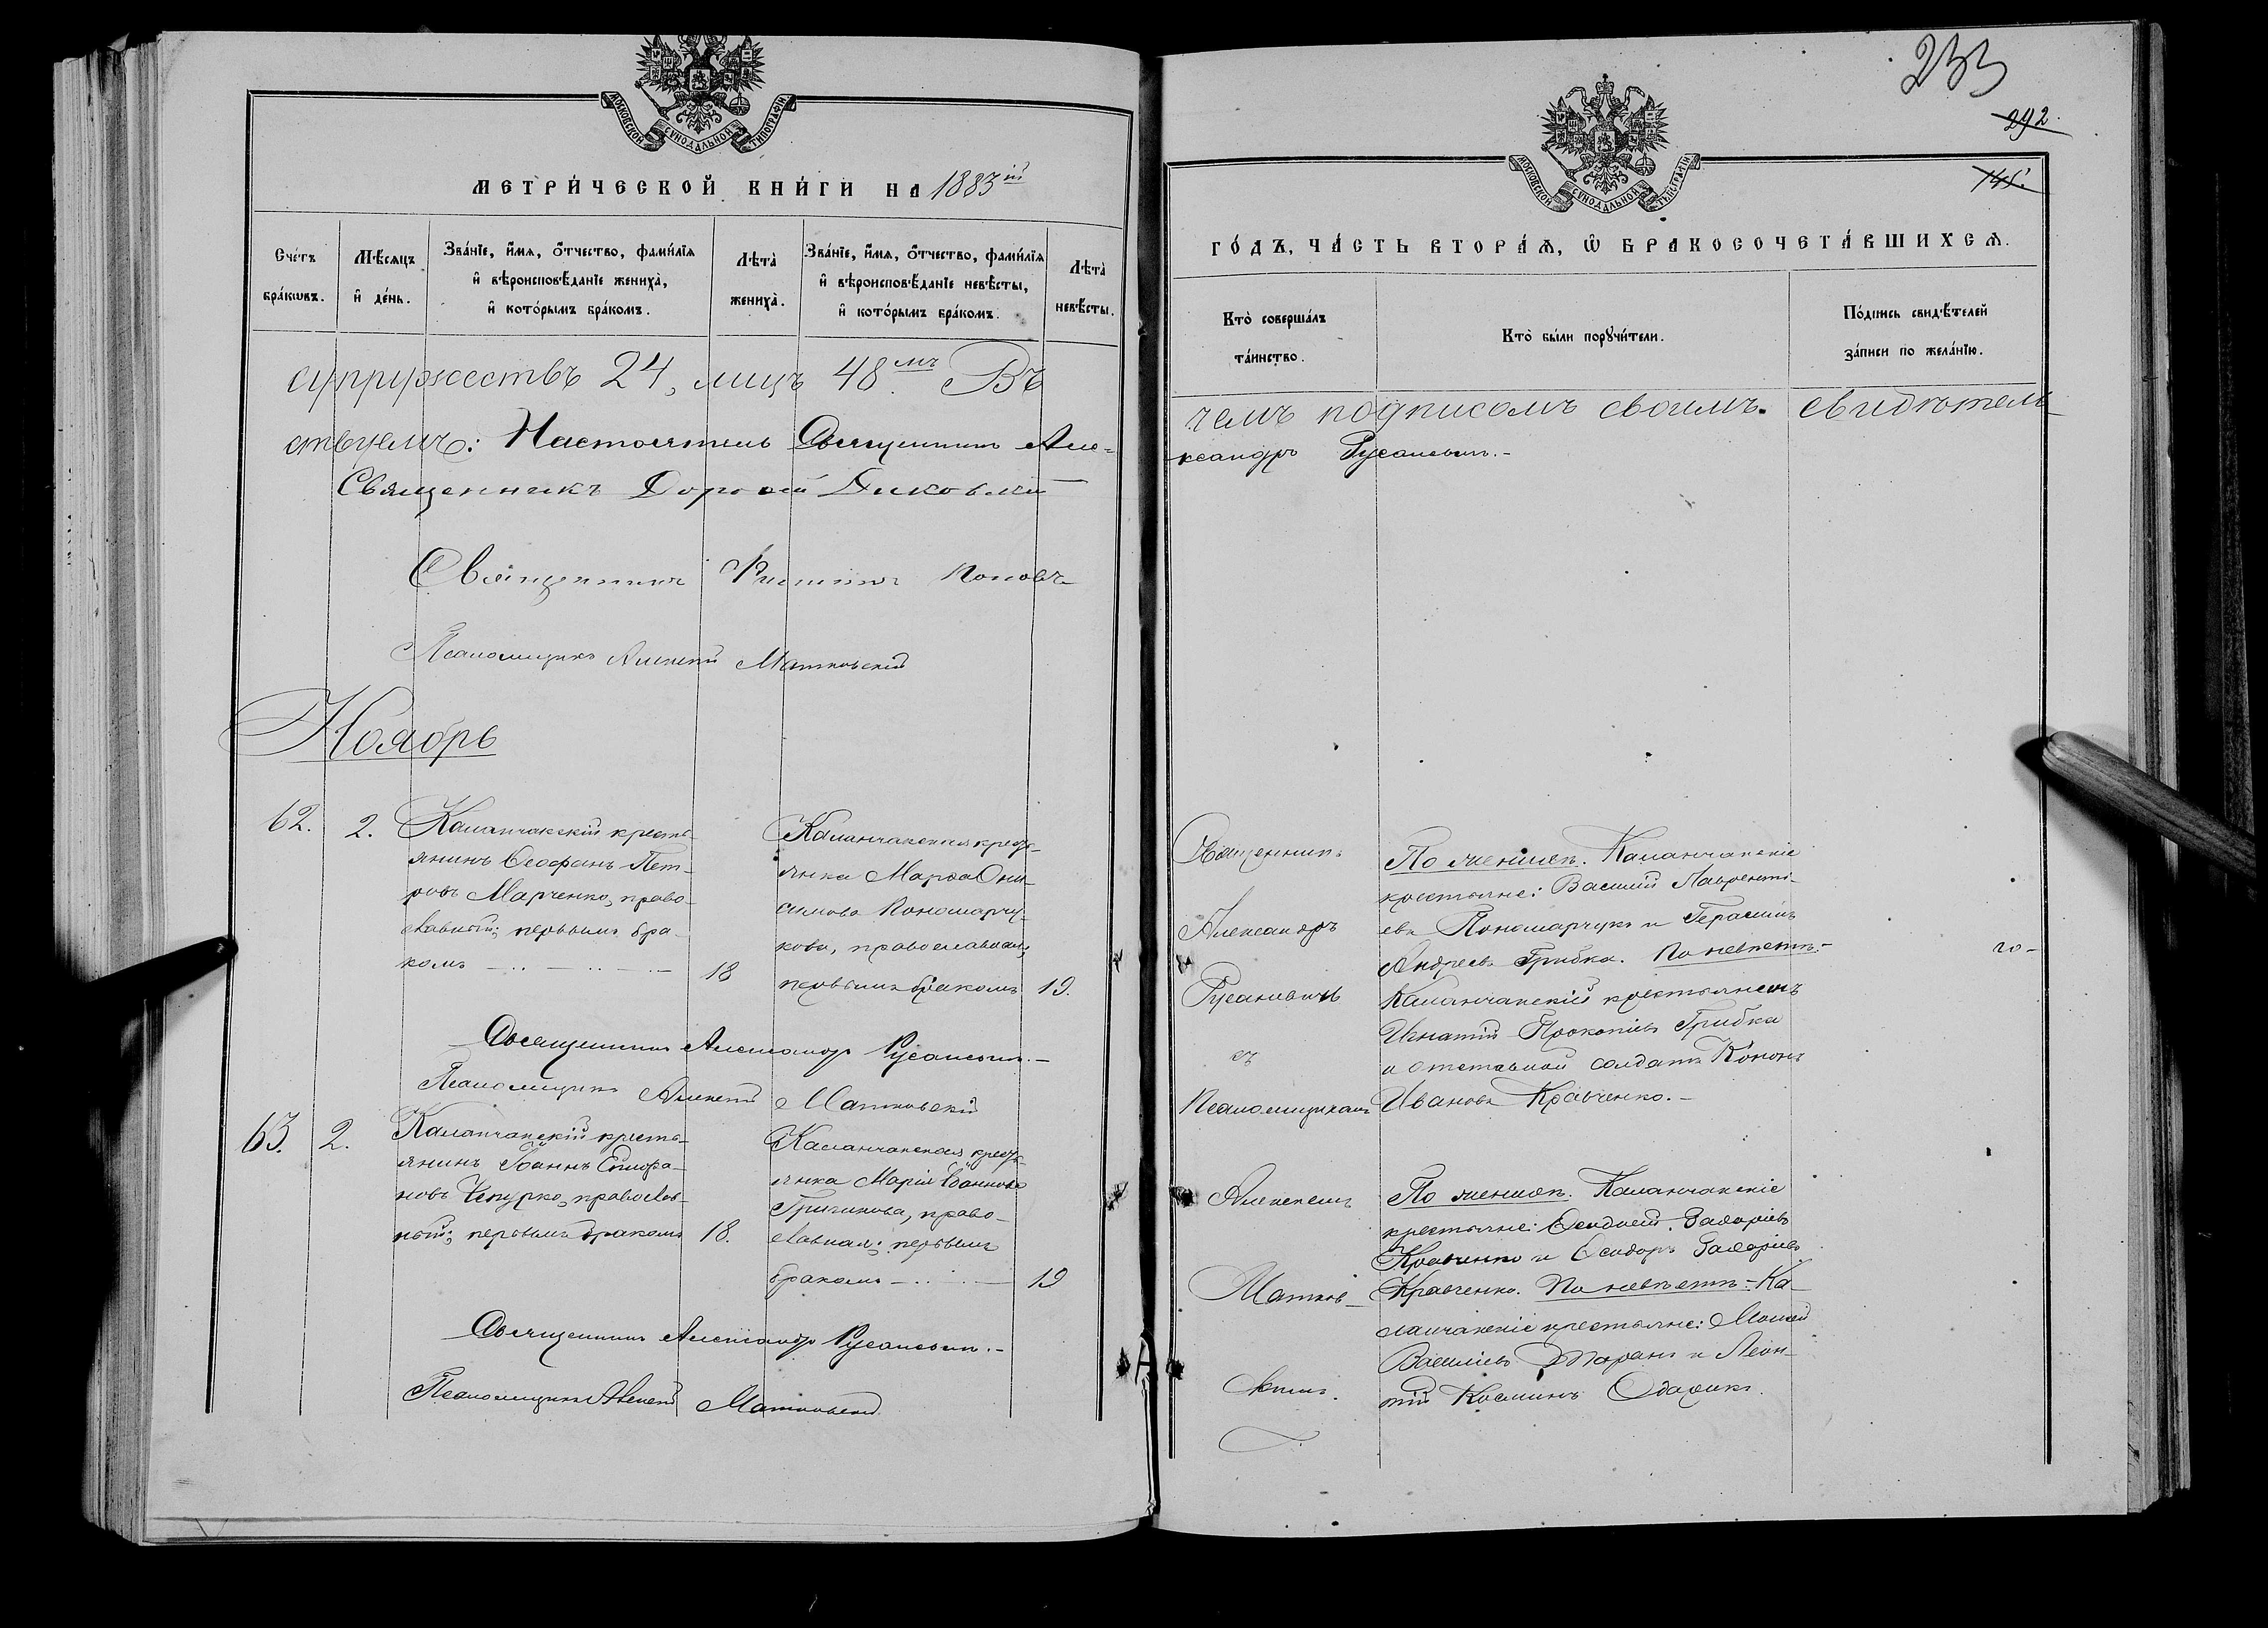 МОСКОВСКОЙ СѴНОДАЛЬНОЙ ТИПОГРАФІИ
МЕТРИ́ЧЕСКОЙ КНИ́ГИ НА 1883ій
Сче́тъ бра́кѡвъ.
Мѣ́сяцъ и҆ де́нь.
Зва́нїе, и҆́мя, ѻ҆́тчество, фами́лїя
и҆ вѣроисповѣ́данїе жениха̀,
и҆ кото́рымъ бра́комъ.
Лѣта̀ жениха̀.
Зва́нїе, и҆́мя, ѻ҆́тчество, фами́лїя
и҆ вѣроисповѣ́данїе невѣ́сты,
и҆ кото́рымъ бра́комъ.
Лѣта̀ невѣ́сты.
супружествъ 24, лицъ 48мъ. Въ
ствуемъ: Настоятель Священникъ Але-
Священникъ Дорофей
Священникъ Поповъ
Псаломщикъ Алексѣй Матковскій
Ноябрь
62. 2. Каланчакскій кресть-
янинъ Ѳеофанъ Пет-
ровъ Марченко, право-
славный; первымъ бра-
комъ 18
Каланчакская кресть-
янка Марѳа Они-
симова Пономарчу-
кова, православная;
первымъ бракомъ 19.
Священникъ Александръ Русаневичъ.-
Псаломщикъ Алексѣй Матковскій
63. 2. Каланчакскій кресть-
янинъ Іоаннъ Епифа-
новъ Чепурко, православ-
ный; первымъ бракомъ 18.
Каланчакская кресть-
янка Марія Іоаннова
право-
славная; первымъ
бракомъ 19
Священникъ Александръ Русаневичъ.-
Псаломщикъ Алексѣй Матковскій
233
292.
145.
МОСКОВСКОЙ СѴНОДАЛЬНОЙ ТИПОГРАФІИ
ГО́ДЪ, ЧА́СТЬ ВТОРА́Ѧ, Ѡ҆ БРАКОСОЧЕТА́ВШИХСѦ.
Кто̀ соверша́лъ
та́инство.
Кто̀ бы́ли порꙋчи́тели.
По́дпись свидѣ́телей
за́писи по жела́нїю.
чемъ подписомъ своимъ свидѣтель-
ксандръ Русаневичъ.-
Священникъ
Александръ
Русаневичъ
съ
Псаломщикомъ
По женихѣ. Каланчакскіе
крестьяне: Василій Лавренті-
евъ Пономарчукъ и Герасимъ
Андреевъ Грибка. По невѣстѣ:-
Каланчакскій крестьянинъ
Игнатій Прокопіевъ Грибка
и отставной солдатъ Кононъ
Ивановъ Кравченко.-
го-
Алексѣемъ
Матков-
скимъ.
По женихѣ. Каланчакскіе
крестьяне: Захаріевъ
Кравченко и Ѳеодоръ Захаріевъ
Кравченко. По невѣстѣ:- Ка-
ланчакскіе крестьяне: Моисей
Василіевъ Таранъ и Леон-
тій Косминъ